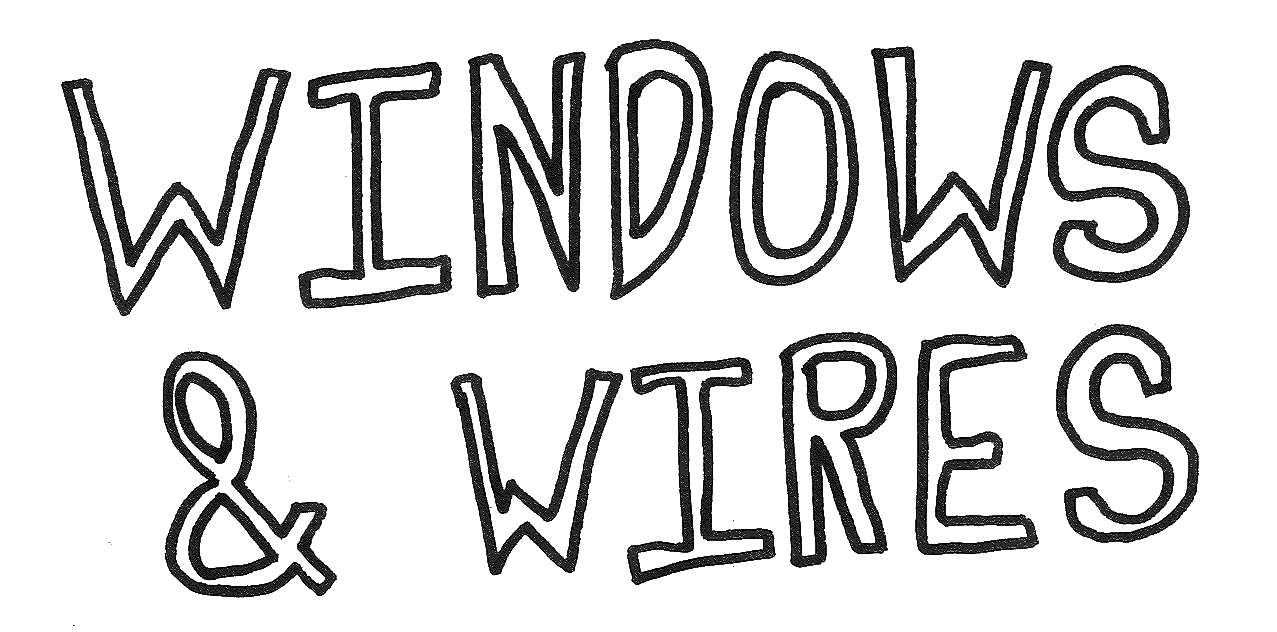 WINDOWS
& WIRES